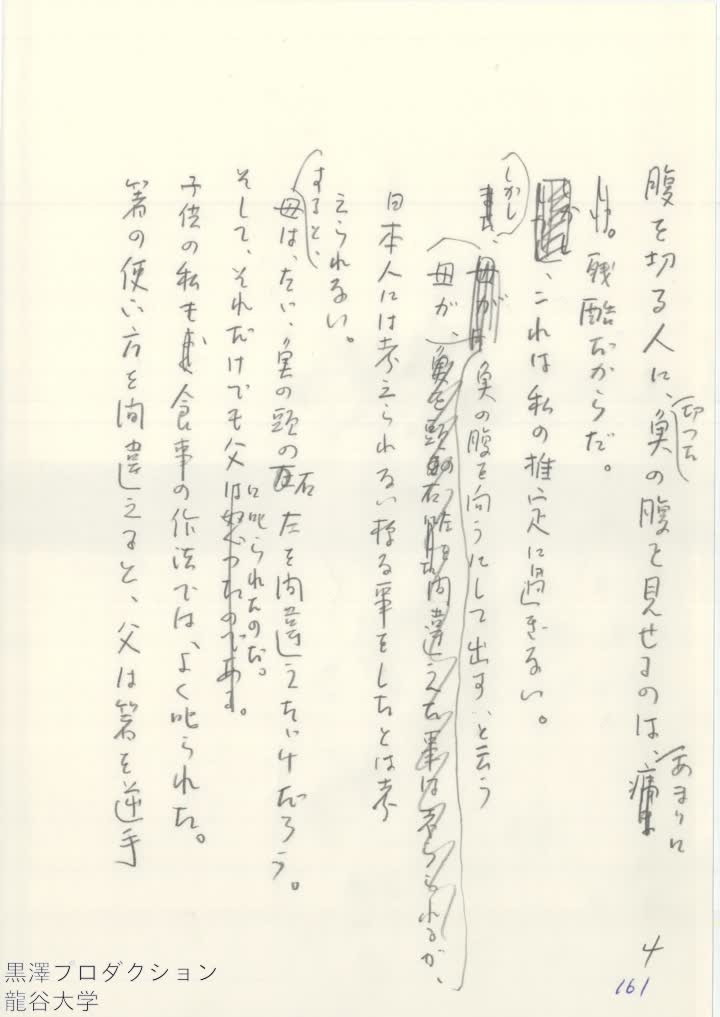 腹を切る人に、切った魚の腹を見せるのは、あまりに
残酷だからだ。
これは私の推定に過ぎない。
しかし、
母が、魚の腹を向うにして出す、と云う
日本人には考えられない様な事をしたとは考
えられない。
すると、
母は、たい、魚の頭の右左を間違えただけだろう。
そして、それだけでも父に叱られたのだ。
子供の私も食事の作法では、よく叱られた。
箸の使い方を間違えると、父は箸を逆手
4
161
黒澤プロダクション
龍谷大学